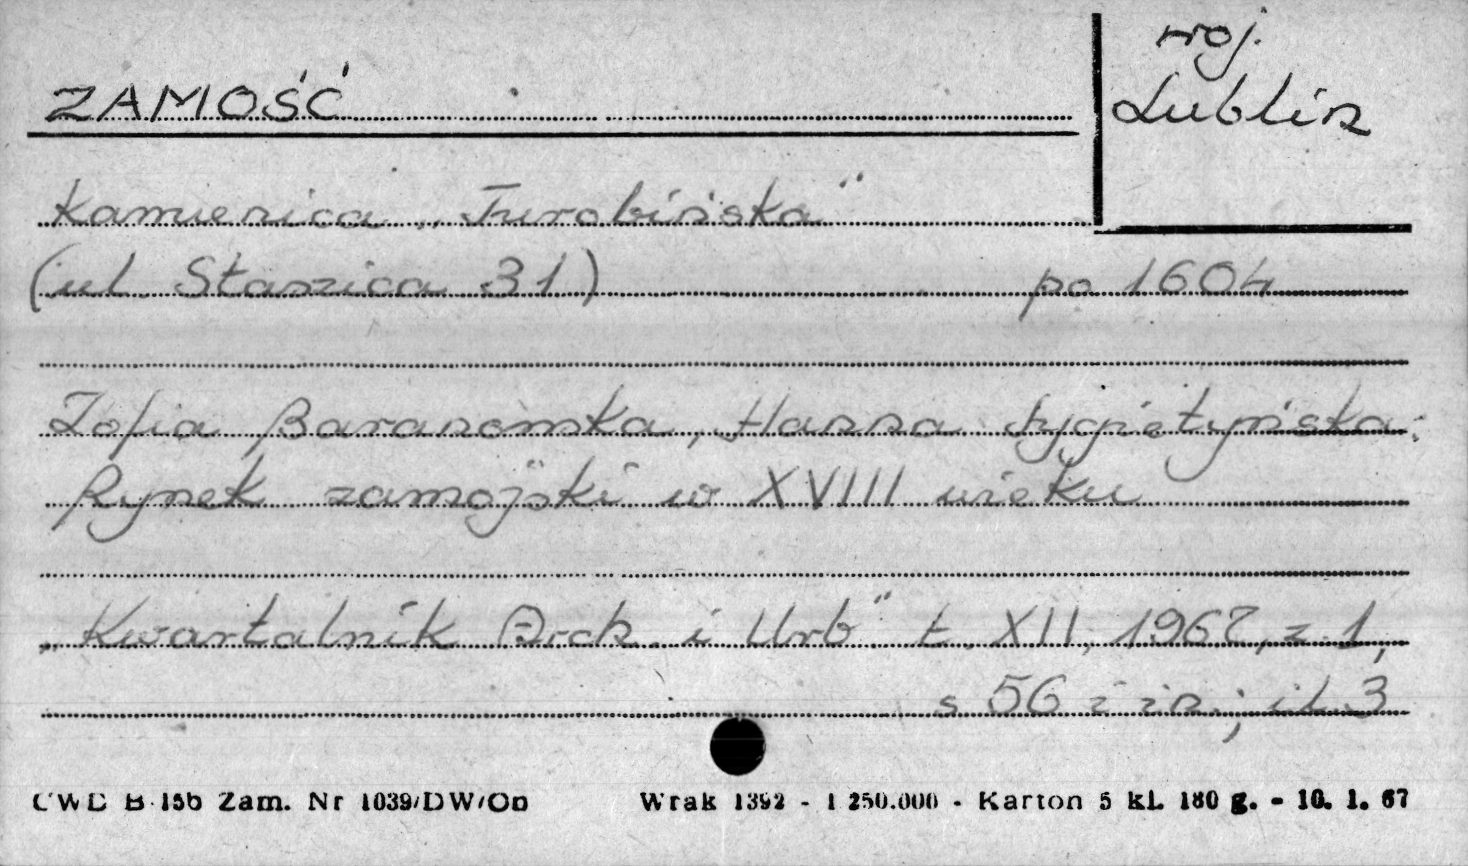 ZAMOŚĆ
woj.
Lublin
Kamienica „Turobińska"
(ul. Staszica 31) po 1604
Zofia Baranowska, Hanna Sygietyńska:
Rynek zamojski w XVIII wieku
„Kwartalnik Arch. i Urb" t. XII, 1967, z. 1,
s 56 i in.; il. 3
CWD B-15b Zam. Nr 1039/DW/On Wrak 1392 - 1 250.000 - Karton 5 kl. 180 g. - 10. 1. 67